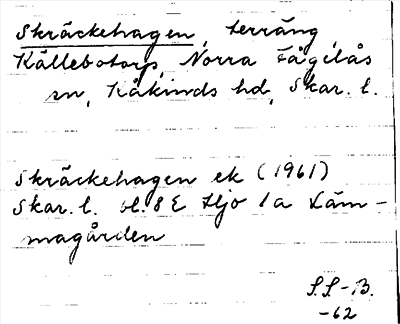 Skräckehagen, terräng,
Källebotorp, Norra Fågelås
sn, Kåkinds hd, Skar. l.
Skräckehagen ek (1961)
Skar. l. bl. 8 E Hjo 1a Läm-
magården
S.S-B.
-62